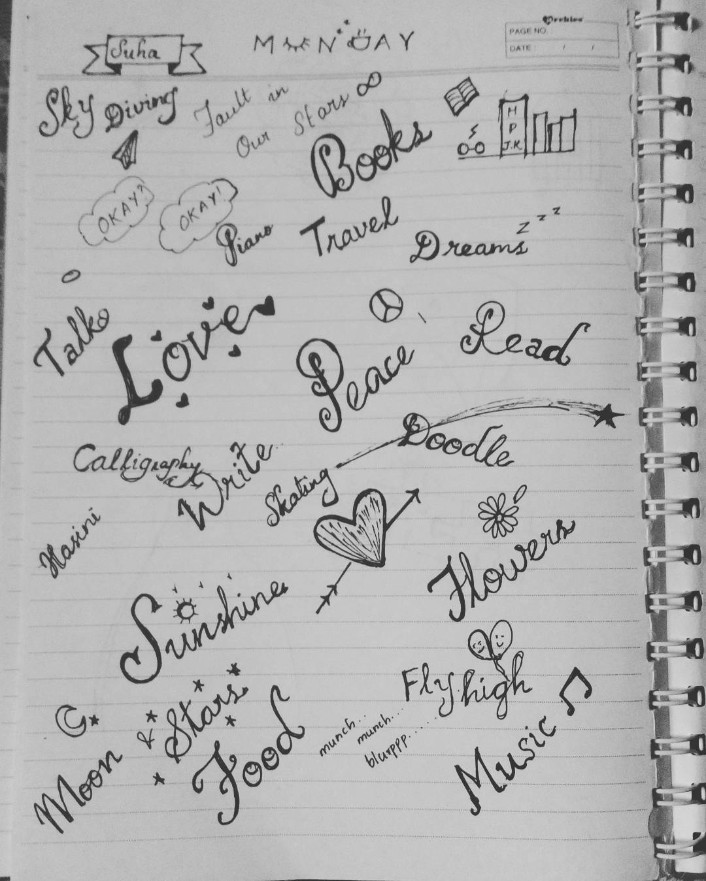 Suha
MONDAY
Archies
PAGE NO.
DATE / /
Sky Diving
Fault in
Our Stars ∞
Books
H
P
J.K
OKAY?
OKAY!
Piano
Travel
Dreams
z z z
Talks
Love
Peace
Read
Doodle
Calligraphy
Write
Skating
Hasini
Flowers
Sunshine
Fly high
Moon & Stars
Food
munch...
munch...
blurppp.....
Music